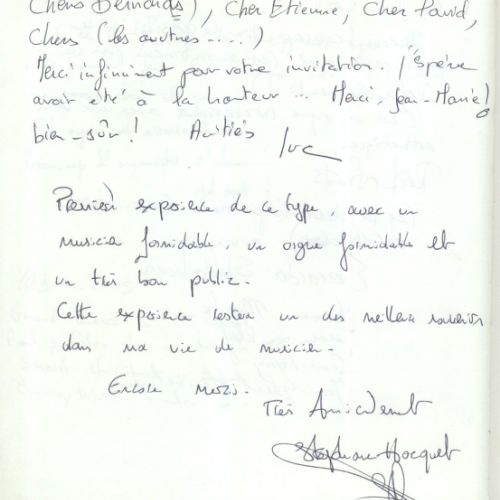 Chers Bernard(s), Cher Etienne, Cher David,
Chers (les autres ....)
Merci infiniment pour votre invitation. J'espère
avoir été à la hauteur ... Merci, Jean-Marie!
bien-sûr! Amitiés
Luc
Première expérience de ce type, avec un
musicien formidable, un orgue formidable et
un très bon public.
Cette expérience restera un des meilleurs souvenirs
dans ma vie de musicien.
Encore merci.
Très Amicalement
Stéphane Hocquet